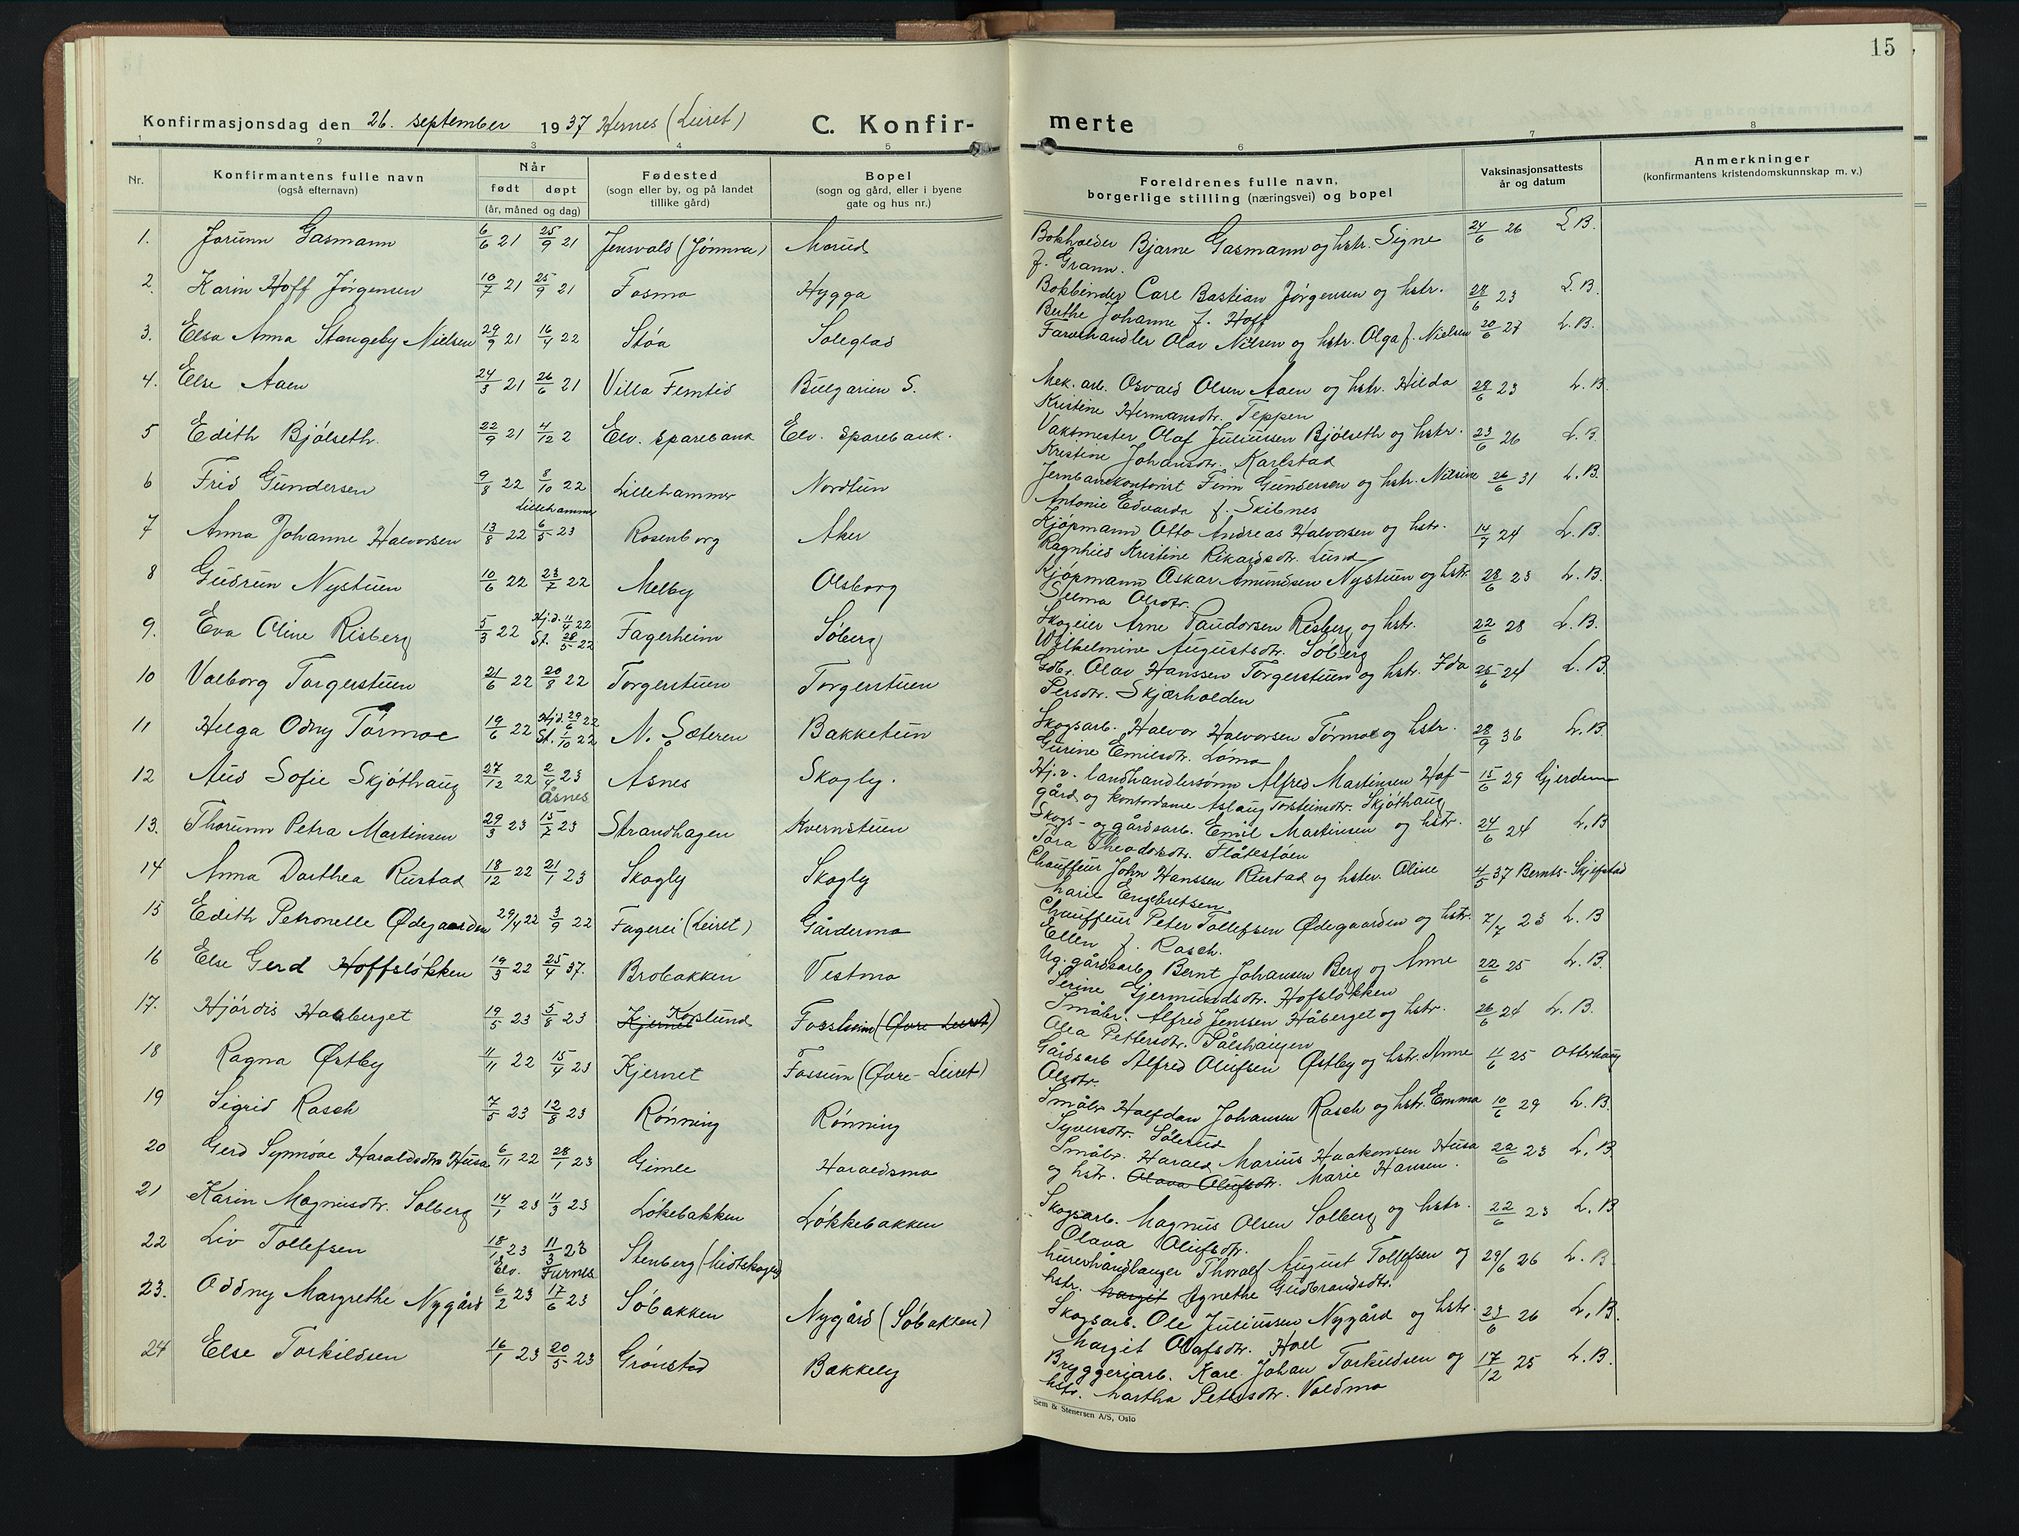 15
Konfirmasjonsdag den 26. september 1937 Hernes (Leiret)
C. Konfir-
merte
1 2 3 4 5 6 7 8
Nr.
Konfirmantens fulle navn
(også efternavn)
Når
født døpt
(år, måned og dag)
Fødested
(sogn eller by, og på landet
tillike gård)
Bopel
(sogn og gård, eller i byene
gate og hus nr.)
Foreldrenes fulle navn,
borgerlige stilling (næringsvei) og bopel
Vaksinasjonsattests
år og datum
Anmerkninger
(konfirmantens kristendomskunnskap m. v.)
1. Jorunn Gasmann 6/6 21 25/9 21 Jensvold (Jømna) Morud
Bokholder Bjarne Gasmann og hstr. Signe 24/6 26 L.B.
f. Grann.
2. Karin Hoff Jørgensen 10/7 21 25/9 21 Fosmo Hygga
Bokbinder Carl Bastian Jørgensen og hstr. 28/6 23 L.B.
Berthe Johanne f. Hoff
3. Elsa Anna Stangeby Nielsen 29/9 21 16/4 22 Støa Soleglad
Farvehandler Olav Nilsen og hstr. Olga f. Nielsen 20/6 27 L.B.
4. Else Aaen 24/3 21 26/6 21 Villa Femtid Bulgarien S.
Mek. arb. Osvald Olsen Aaen og hstr. Hilda 28/6 23 L.B.
Kristine Hermansdtr. Teppen
5 Edith Bjølseth. 22/9 21 4/12 2 Elv. sparebank Elv. sparebank.
Vaktmester Olaf Juliussen Bjølseth og hstr. 23/6 26 L.B.
Kristine Johansdtr. Karlstad
6 Frid Gundersen 9/8 22 8/10 22 Lillehammer Nordtun
Jernbanekontorist Finn Gundersen og hstr. Nilsine 26/6 31 L.B.
Antonie Edvarda f. Skibnes
Lillehammer
7 Anna Johanne Halvorsen 13/8 22 6/5 23 Rosenborg Aker
Kjøpmann Otto Andreas Halvorsen og hstr. 14/7 24 L.B.
Ragnhild Kristine Rikardsdtr. Lund
8 Gudrun Nystuen 10/6 22 23/7 22 Melby Olsborg
Kjøpmann Oskar Amundsen Nystuen og hstr. 28/6 23 L.B.
Selma Olsdtr.
9. Eva Oline Risberg 5/3 22 Hj.d. 11/4 22 St. 28/5 22 Fagerheim Søberg
Skogeier Arne Paudorsen Risberg og hstr. 22/6 28 L.B.
Wilhelmine Augustsdtr. Søberg
10 Valborg Torgerstuen 21/6 22 20/8 22 Torgerstuen Torgerstuen
Gdbr. Olav Hanssen Torgerstuen og hstr. Ida 25/6 24 L.B.
Persdtr. Skjærholden
11 Helga Odny Tørmoe 19/6 22 Hjd. 29/6 22 St. 1/10 22 N. Sæteren Bakketun
Skogsarb. Halvor Halvorsen Tørmoe og hstr. 28/9 36 L.B.
Gurine Emilsdtr. Lømo
12 Aud Sofie Skjøthaug 27/12 22 2/4 23 Åsnes Skogly.
Åsnes
Hj.v. landhandlersønn Alfred Martinsen Hof- 15/6 29 Gjerdrum
gård og kontordame Aslaug Torsteinsdtr. Skjøthaug
13. Thorunn Petra Martinsen 29/3 23 15/7 23 Strandhagen Kvernstuen
Skogs- og gårdsarb. Emil Martinsen og hstr. 24/6 24 L.B
Tora Theodorsdtr. Flåtestøen
14 Anna Dorthea Rustad 18/12 22 21/1 23 Skogly Skogly
Chauffeur John Hanssen Rustad og hstr. Oline 4/5 37 Bernts-Skjefstad
Marie Engebretsen
15 Edith Petronelle Ødegaarden 29/4 22 3/9 22 Fagerli (Leiret) Gårdermo
Chauffeur Peter Tollefsen Ødegaarden og hstr. 7/7 23 L.B
Ellen f. Rasch.
16 Else Gerd Hoffsløkken 19/3 22 25/4 37. Brobakken Vestmo
Ug. gårdsarb. Bernt Johansen Berg og Anne 22/6 25 L.B.
Serine Gjermundsdtr. Hofsløkken
17. Hjørdis Haaberget 19/5 23 5/8 23 Kjernet Korslund Fossheim (Øvre Leiret)
Småbr. Alfred Jenssen Håberget og hstr. 26/6 24 L.B.
Olea Pettersdtr. Pålshaugen
18 Ragna Østby 11/11 22 15/4 23 Kjernet Fossum (Øvre-Leiret)
Gårdsarb Alfred Olufsen Østby og hstr. Anne 11/6 25 Otterhaug
Olsdtr.
19 Sigrid Rasch 7/5 23 12/8 23 Rønning Rønning
Småbr Halfdan Johansen Rasch og hstr. Emma 10/6 29 L.B.
Syversdtr. Sølerud
20 Gerd Synnøve Haraldsdtr. Husa 6/11 22 28/1 23 Gimle Haraldsmo
Småbr. Harald Marius Haakonsen Husa 22/6 23 L.B
og hstr. Olava Olufsdtr. Marie Hansen.
21 Karin Magnusdtr. Solberg 14/1 23 11/3 23 Løkebakken Løkkebakken
Skogsarb. Magnus Olsen Solberg og hstr. 22/6 23 L.B
Olava Olufsdtr.
22 Liv Tollefsen 18/1 23 11/3 23 Stenberg (Midtskogen)
Elv. Furnes
Murerhåndlanger Thoralf August Tollefsen og 29/6 26 L.B.
hstr. Margit Agnethe Gudbrandsdtr.
23. Oddny Margrethe Nygård 6/2 23 17/6 23 Søbakken Nygård (Søbakken)
Skogsarb. Ole Juliussen Nygård og hstr. 23/6 26 L.B.
Margit Olafsdtr. Hoel
24 Else Torkildsen 16/1 23 20/5 23 Grønstad Bakkely
Bryggeriarb. Karl Johan Torkildsen og 17/12 25 L.B.
hstr. Martha Petersdtr. Voldmo
Sem & Stenersen A/S, Oslo